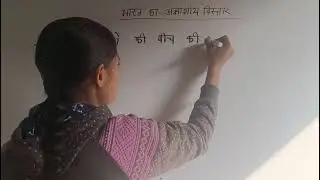 भारत का अक्षांशीय विस्तार
की बीच की